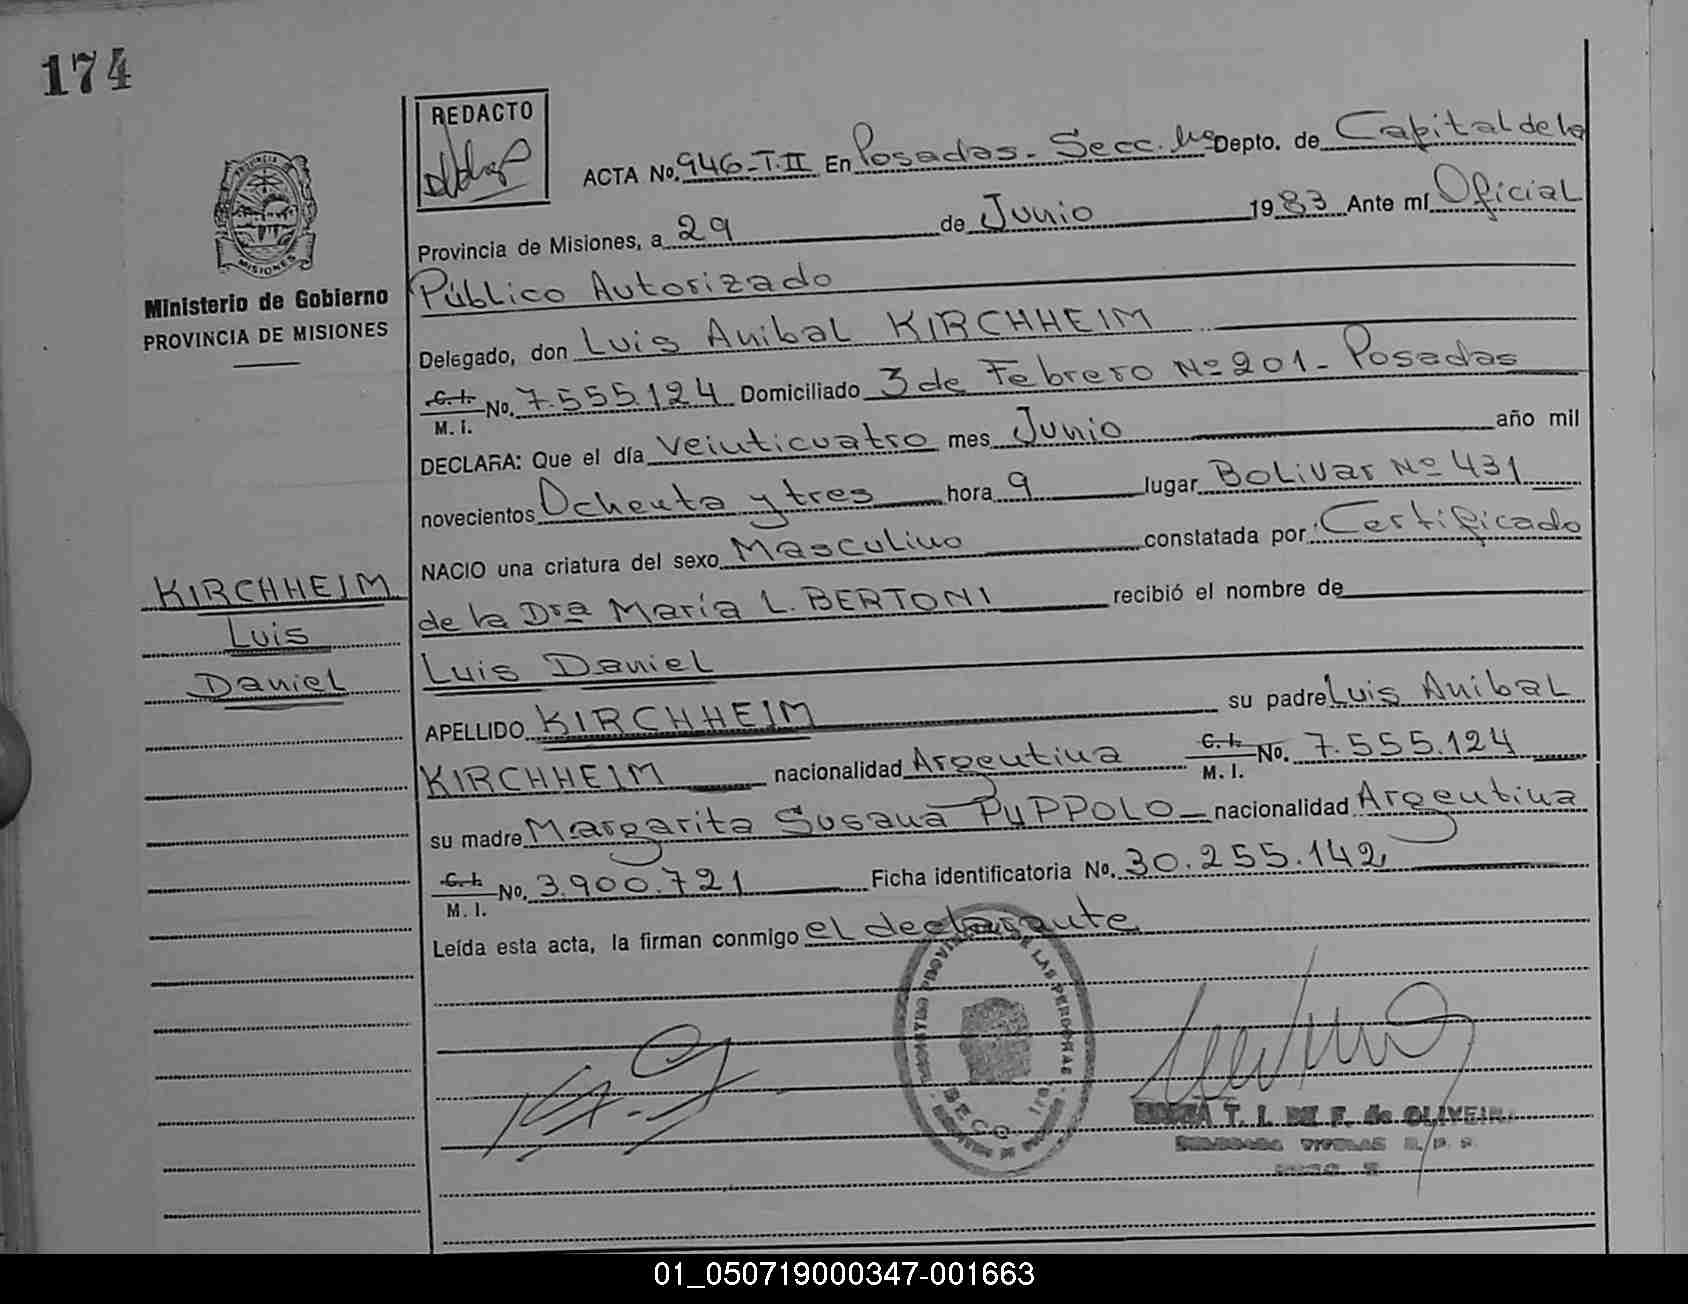 174
REDACTO
ACTA No. 946-T.II En Posadas - Secc. Depto. de Capital de la
Provincia de Misiones, a 29 de Junio 1983 Ante mí Oficial
Público Autorizado
PROVINCIA
MISIONES
Ministerio de Gobierno
PROVINCIA DE MISIONES
Delegado, don Luis Anibal KIRCHHEIM
C. I.
M. I. No. 7.555.124 Domiciliado 3 de Febrero Nº 201 - Posadas
DECLARA: Que el día veinticuatro mes Junio año mil
novecientos Ochenta y tres hora 9 lugar Bolivar Nº 431
NACIO una criatura del sexo Masculino constatada por: Certificado
de la Dra María L. BERTONI recibió el nombre de
KIRCHHEIM
Luis
Daniel
Luis Daniel
APELLIDO KIRCHHEIM su padre Luis Anibal
KIRCHHEIM nacionalidad Argentina C. I. M. I. No. 7.555.124
su madre Margarita Susana PUPPOLO nacionalidad Argentina
C. I.
M. I. No. 3.900.721 Ficha identificatoria No. 30.255.142
Leída esta acta, la firman conmigo el declarante
DE LAS PERSONAS
SECC
T. I. DE F. de OLIVEIRA
01_050719000347-001663